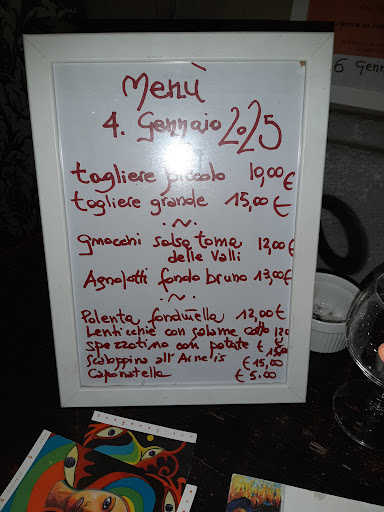 Menù
4. Gennaio 2025
tagliere piccolo 10,00€
tagliere grande 15,00€
.~.
gnocchi salsa toma 12,00€
delle Valli
Agnolotti fondo bruno 13,00€
.~.
Polenta fonduella 12,00€
Lenticchie con salame cotto 12€
Spezzatino con patate € 15,00
Scaloppina all'Arneis € 15,00
Caponatella € 5.00
6 Genn